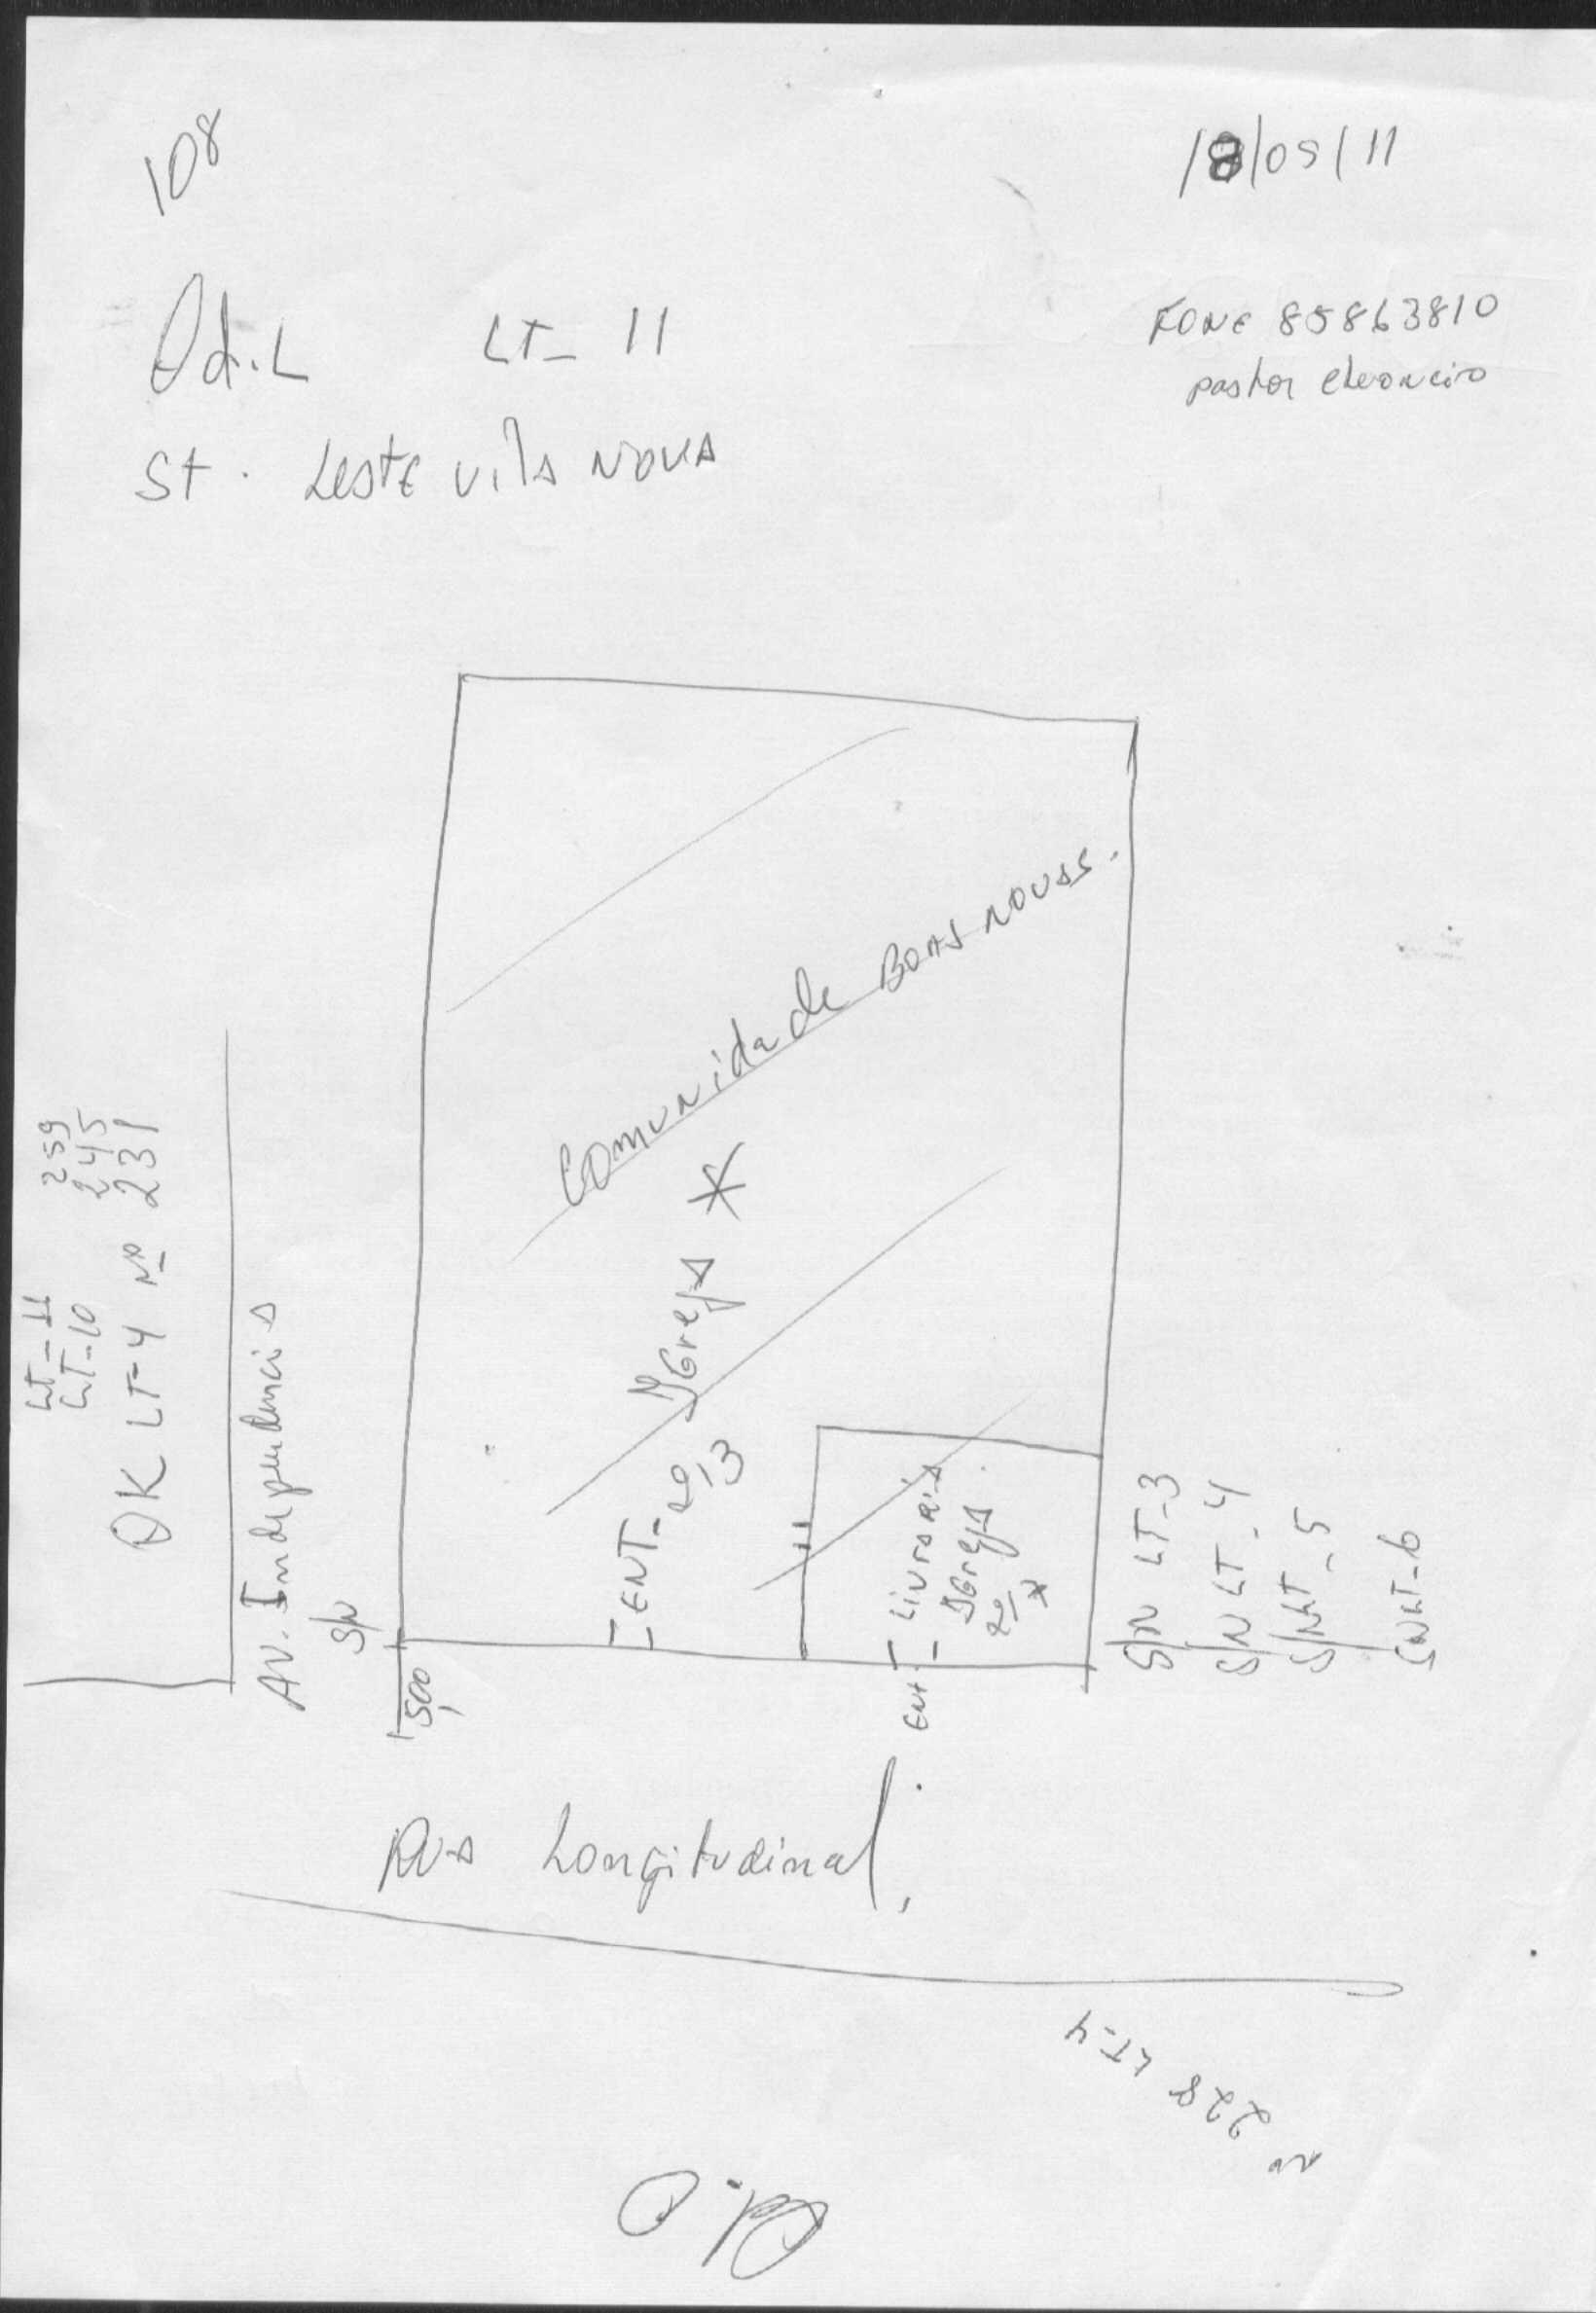 108
18/05/11
Qd.L LT- 11
FONE 85863810
pastor
St. Leste vila NOVA
Comunidade BOAS NOVAS.
IGreja
ENT-
20/3
Livraria
IGreja
20/
ENT
LT-11 259
LT-10 245
OK LT-4 Nº 231
AV. Independencia
S/N
5,00
S/N LT-3
S/N LT-4
S/N LT-5
S/N LT-6
Rua Longitudinal.
N 228 LT-4
Qd.O